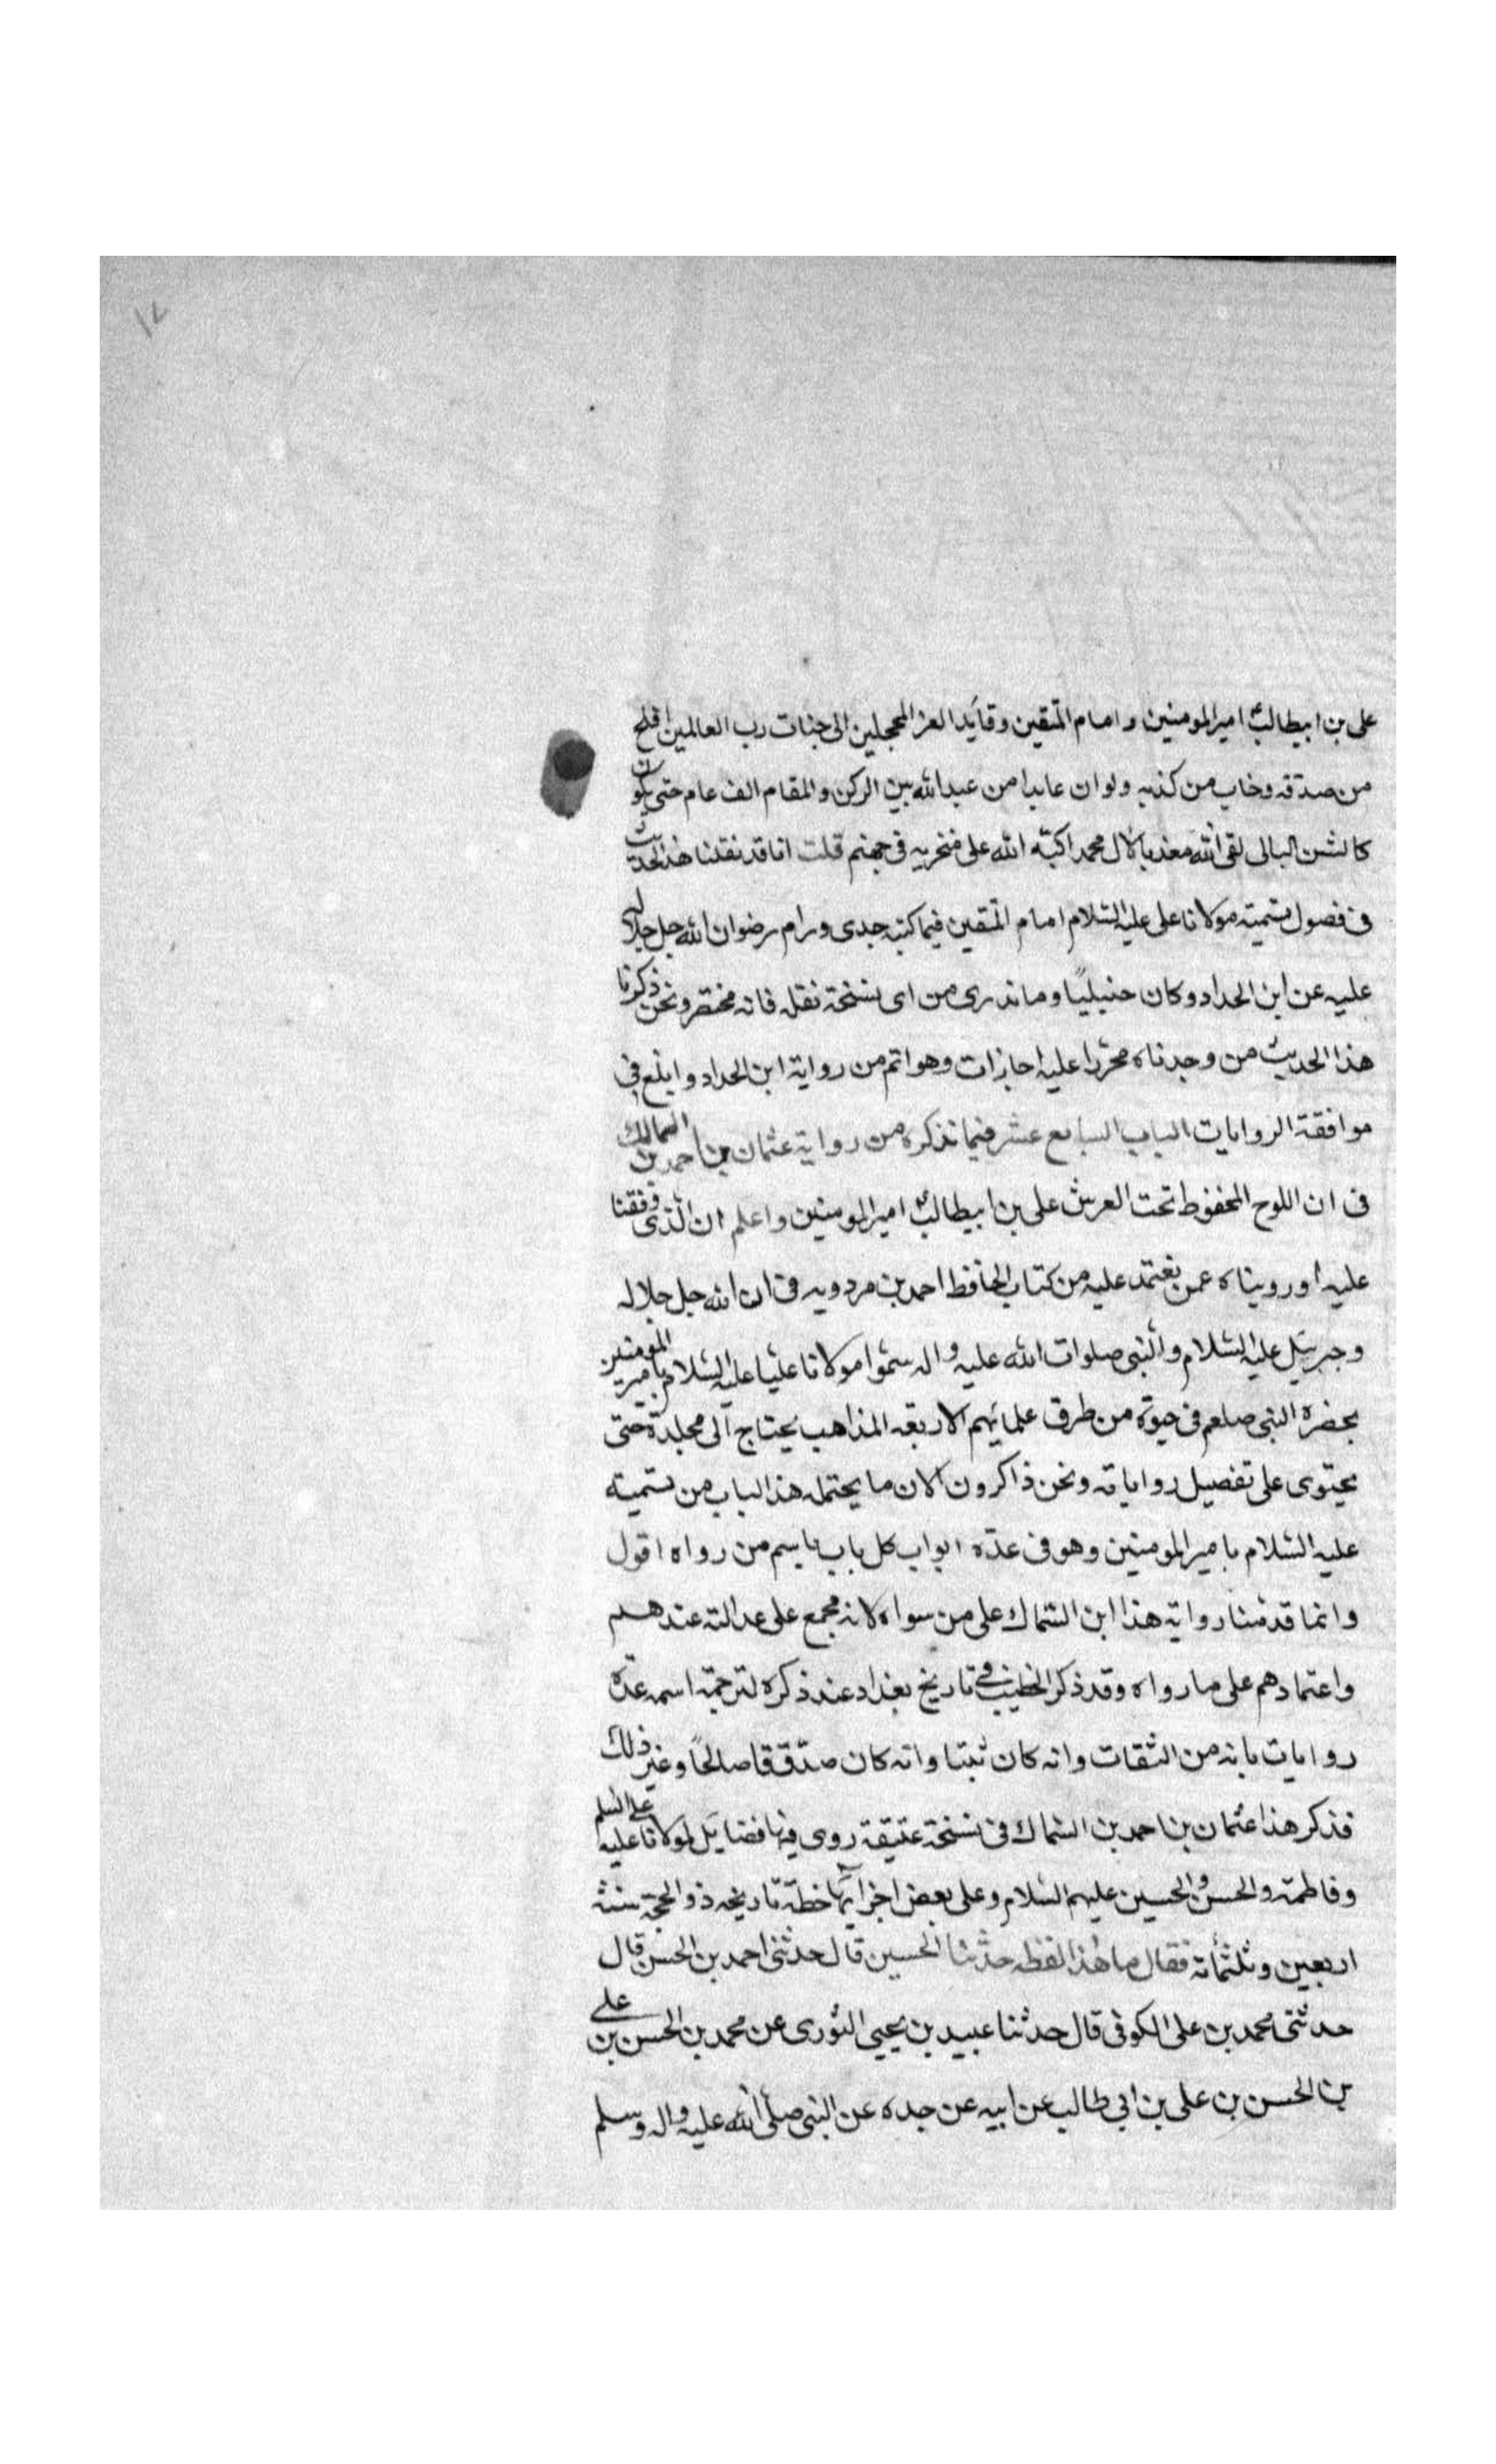 ١٧
على بن ابيطالب امير المومنين و امام المتقين وقايد الغر المحجلين الى جنات رب العالمين افلح
من صدقه وخاب من كذبه ولو ان عابدا من عبد الله بين الركن و المقام الف عام حتى يكون
كالشن البالى لقى الله مبغضا لال محمد اكبه الله على منخريه فى جهنم قلت انا قد نقلنا هذا الحديث
فى فصول تسميته مولانا على عليه السلام امام المتقين فيما كتبه جدى ورام رضوان الله جل جلاله
عليه عن ابن الحداد وكان حنبليًا وما ندرى من اى نسخة نقله فانه مختصر ونحن ذكرنا
هذا الحديث من وجدناه محررا عليه اجازات وهو اتم من رواية ابن الحداد و ابلغ فى
موافقة الروايات الباب السابع عشر فيما نذكره من رواية عثمان بن احمد بن السماك
فى ان اللوح المحفوظ تحت العرش على بن ابيطالب امير المومنين و اعلم ان الذى وقفنا
عليه او رويناه عمن نعتمد عليه من كتاب الحافظ احمد بن مردويه فى ان الله جل جلاله
وجبرئيل عليه السلام والنبى صلوات الله عليه واله سموا مولانا عليا عليه السلام بامير المومنين
بحضرة النبى صلعم فى حيوته من طرق علمايهم الاربعه المذاهب يحتاج الى مجلدة حتى
يحتوى على تفصيل رواياته ونحن ذاكرون الان ما يحتمله هذا الباب من تسميته
عليه السلام بامير المومنين وهو فى عدّه ابواب كل باب باسم من رواه اقول
وانما قدمنا رواية هذا ابن السماك على من سواه لانه مجمع على عدالته عندهم
واعتمادهم على ما رواه وقد ذكر الخطيب فى تاريخ بغداد عند ذكره لترجمة اسمه عدّه
روايات بانه من الثقات وانه كان ثبتا وانه كان صدّق قا صالحًا وغير ذلك
فذكر هذا عثمان بن احمد بن السماك فى نسخة عتيقة روى فيها فضايل لمولانا عليه على السلم
وفاطمة والحسن والحسين عليهم السلام وعلى بعض اجزايها خطه تاريخه ذو الحجة سنة
اربعين وثلثمأته فقال ما هذا لفظه حدثنا الحسين قال حدثنى احمد بن الحسن قال
حدثنى محمد بن على الكوفى قال حدثنا عبيد بن يحيى الثورى عن محمد بن الحسن بن على
بن الحسن بن على بن ابى طالب عن ابيه عن جده عن النبى صلى الله عليه واله وسلم